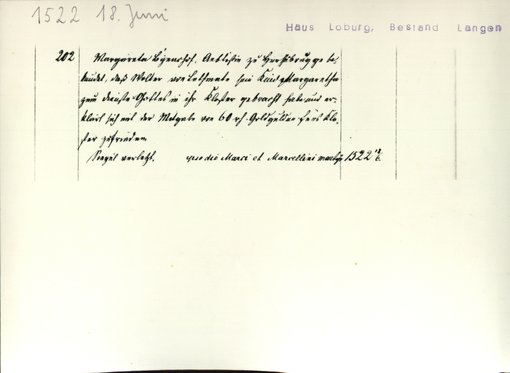 1522 18. Juni
Haus Loburg, Bestand Langen
202 Margareta Äbtissin zu be,
kundet, daß Wolter sein Kind Margaretha
zum dienste Gottes in ihr Kloster gebracht habe und er-
klärt sich mit der Mitgabe von 60 rh. Goldgulden fürs Klo-
ster zufrieden
Siegel verletzt. ipso die Marci et Marcelliani 1522